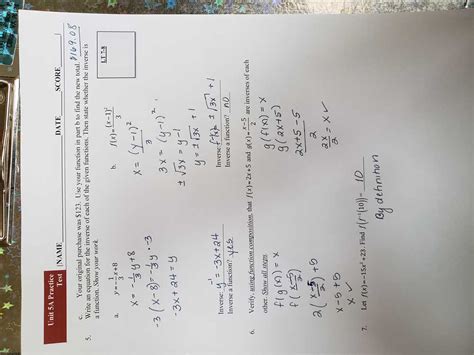 Unit 5A Practice
Test
NAME DATE SCORE
c. Your original purchase was $123. Use your function in part b to find the new total. $169.05
5. Write an equation for the inverse of each of the given functions. Then state whether the inverse is
a function. Show your work.
LT 7-8
a. y = -1/3 x + 8
x = -1/3 y + 8
-3(x-8) = -1/3 y · -3
-3x + 24 = y
Inverse: y⁻¹ = -3x + 24
Inverse a function? yes
b. f(x) = (x-1)²/3
x = (y-1)²/3
3x = (y-1)²
±√3x = y-1
y = ±√3x + 1
Inverse: ±√3x + 1
Inverse a function? no
6. Verify, using function composition, that f(x)=2x+5 and g(x)= (x-5)/2 are inverses of each
other. Show all steps.
f(g(x)) = x
f((x-5)/2)
2((x-5)/2) + 5
x-5+5
x ✓
g(f(x)) = x
g(2x+5)
(2x+5-5)/2
2x/2 = x ✓
7. Let f(x) = -15x³ + 23. Find f(f⁻¹(10)) = 10
By definition